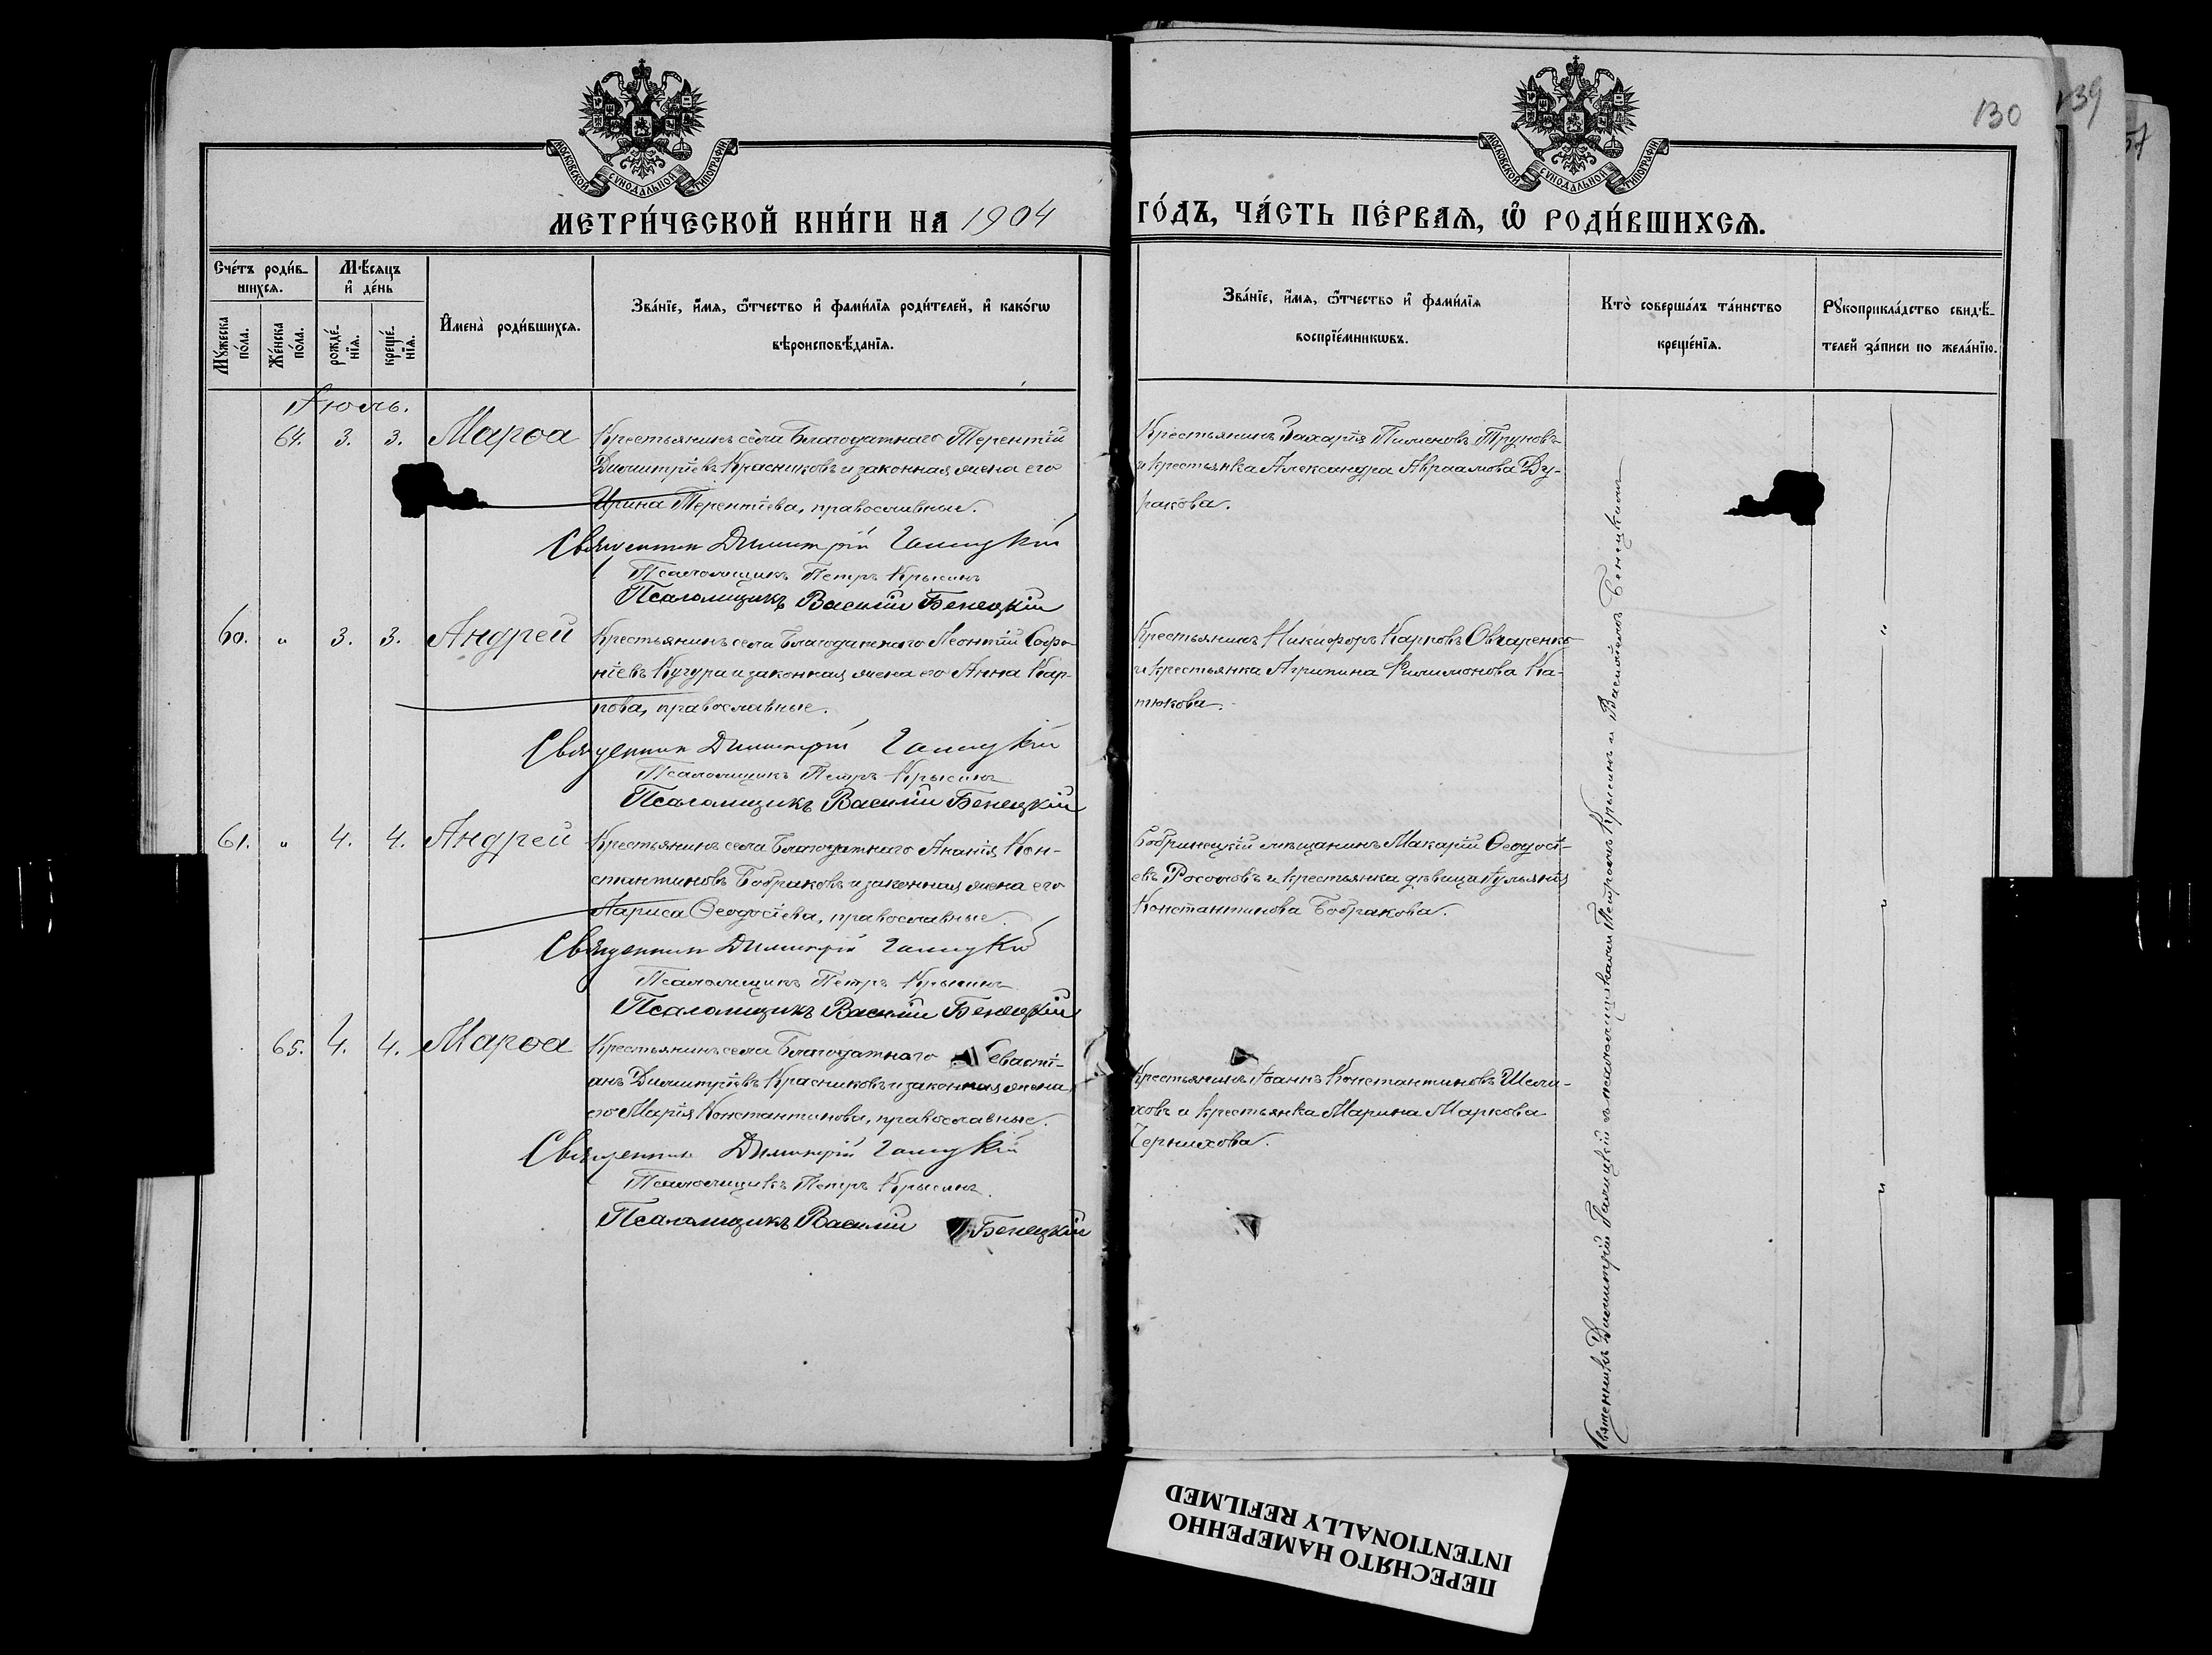 МОСКОВСКОЙ СѴНОДАЛЬНОЙ ТИПОГРАФІИ
МОСКОВСКОЙ СѴНОДАЛЬНОЙ ТИПОГРАФІИ
130
139
57
МЕТРИ́ЧЕСКОЙ КНИ́ГИ НА 1904 ГО́ДЪ, ЧА́СТЬ ПЕ́РВАѦ, Ѽ РОДИ́ВШИХСѦ.
Сче́тъ роди́в-
шихсѧ.
Мꙋ́жеска по́ла.
Же́нска по́ла.
Мѣ́сѧцъ
и҆ де́нь
рожде́-
нїѧ.
креще́-
нїѧ.
И҆мена̀ роди́вшихсѧ.
Зва́нїе, и҆́мѧ, ѻ҆́тчество и҆ фами́лїѧ роди́телей, и҆ како́гѡ
вѣроисповѣ́данїѧ.
Зва́нїе, и҆́мѧ, ѻ҆́тчество и҆ фами́лїѧ
воспрїе́мникѡвъ.
Кто̀ соверша́лъ та́инство
креще́нїѧ.
Рꙋкоприкла́дство свидѣ́-
телей за́писи по жела́нїю.
Іюль.
64. 3. 3. Марѳа
Крестьянинъ села Благодатнаго Терентій
Димитріевъ Красниковъ и законная жена его
Ирина Терентіева, православные.
Священник Димитрій Галицкій
Псаломщикъ Петръ Крысинъ
Псаломщикъ Василій Бенецкій
Крестьянинъ Захарія Пименовъ Труновъ
и крестьянка Александра Авраамова Ду-
ракова.
60. " 3. 3. Андрей
Крестьянинъ села Благодатнаго Леонтій Софро-
ніевъ Кучура и законная жена его Анна Кар-
пова, православные.
Священник Димитрій Галицкій
Псаломщикъ Петръ Крысинъ
Псаломщикъ Василій Бенецкій
Крестьянинъ Никифоръ Карповъ Овчаренко
и крестьянка Агрипина Филимонова Ка-
тюкова.
"
61. " 4. 4. Андрей
Крестьянинъ села Благодатнаго Ананія Кон-
стантиновъ Бобраковъ и законная жена его
Лариса Ѳеодосіева, православные.
Священник Димитрій Галицкій
Псаломщикъ Петръ Крысинъ
Псаломщикъ Василій Бенецкій
Бобринецкій мѣщанинъ Макарій Ѳеодосі-
евъ Росоловъ и крестьянка дѣвица Іуліанія
Константинова Бобракова.
"
65. 4. 4. Марѳа
Крестьянинъ села Благодатнаго Севасті-
анъ Димитріевъ Красниковъ и законная жена
его Марія Константинова, православные.
Священник Димитрій Галицкій
Псаломщикъ Петръ Крысинъ.
Псаломщикъ Василій Бенецкій
Крестьянинъ Іоаннъ Константиновъ Шели-
ховъ и крестьянка Марина Маркова
Чернихова.
"
Священникъ Димитрій Галицкій съ псаломщиками Петромъ Крысинъ и Василіемъ Бенецкимъ
ПЕРЕСНЯТО НАМЕРЕННО
INTENTIONALLY REFILMED